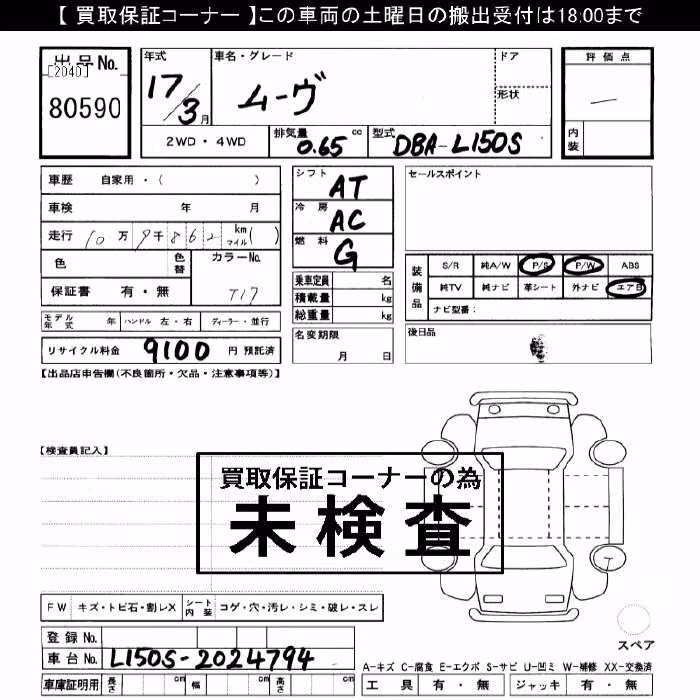 【 買取保証コーナー 】この車両の土曜日の搬出受付は18:00まで
出品No. 年式 車名・グレード ドア 評価点
[2040]
80590 17/3月 ムーヴ 形状 —
2WD・4WD 排気量 0.65 cc 型式 DBA-L150S 内装
車歴 自家用・( ) シフト AT セールスポイント
車検 年 月 冷房 AC
走行 10万9千862 km マイル( ) 燃料 G
色 色替 カラーNo. 装備品 S/R 純A/W P/S P/W ABS
保証書 有・無 T17 乗車定員 名 純TV 純ナビ 革シート 外ナビ エアB
積載量 kg ナビ型番:
モデル年式 年 ハンドル 左・右 ディーラー・並行 総重量 kg
リサイクル料金 9100 円 預託済 名変期限 月 日 後日品
【出品店申告欄(不良箇所・欠品・注意事項等)】
【検査員記入】
買取保証コーナーの為
未検査
FW キズ・トビ石・割レX シート内装 コゲ・穴・汚レ・シミ・破レ・スレ
登録No. スペア
車台No. L150S-2024794
A-キズ C-腐食 E-エクボ S-サビ U-凹ミ W-補修 XX-交換済
車庫証明用 長さ cm 幅 cm 高さ cm 工具 有・無 ジャッキ 有・無